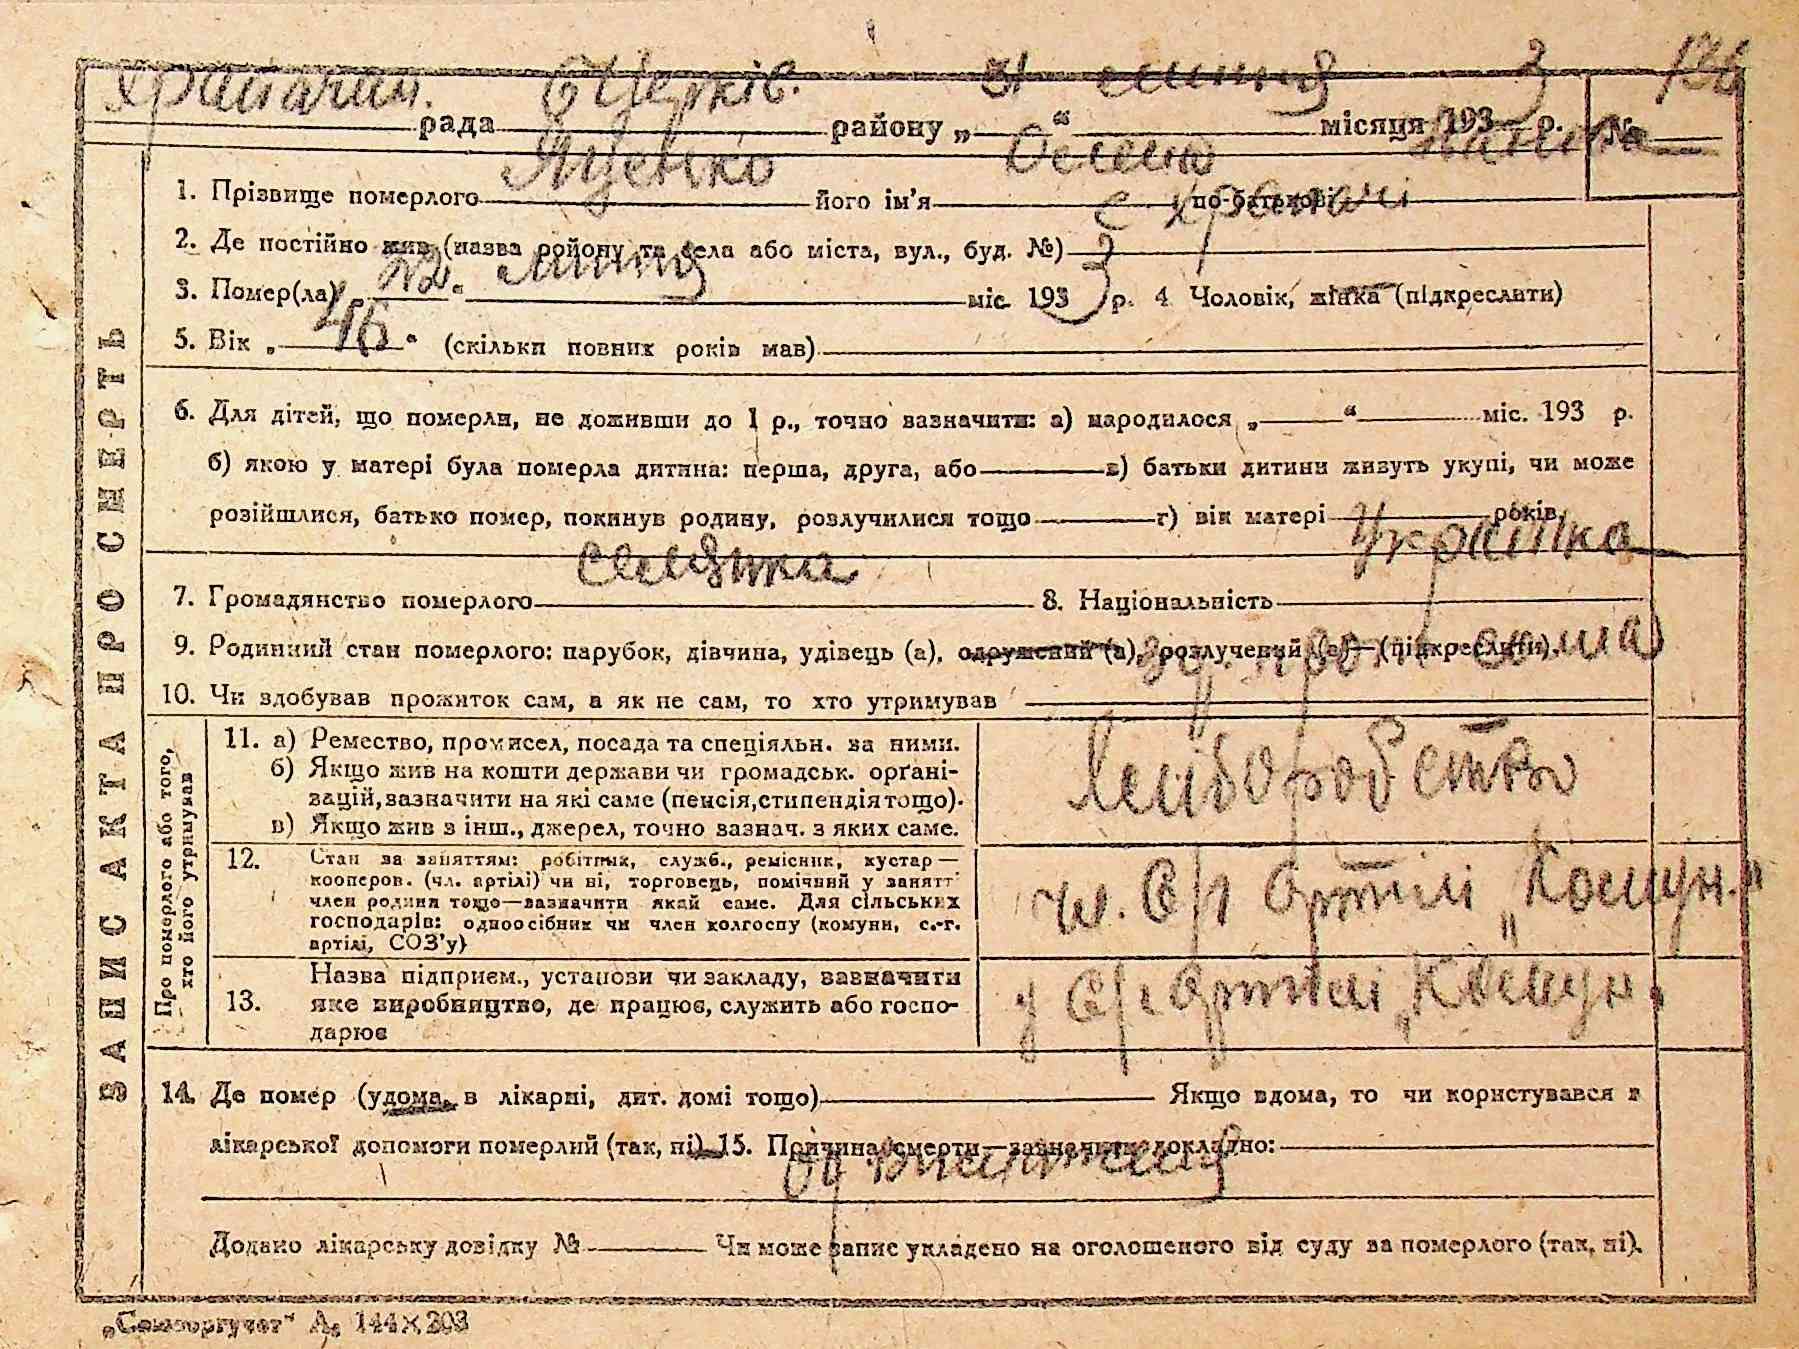 Храпачин. рада БЦерків. району „ 31 “ липня місяця 1933 р. № 136
1. Прізвище померлого Яценко його ім'я Олена по-батькові
2. Де постійно жив (назва району та села або міста, вул., буд. №) с Храпачі
3. Помер(ла) „ “ липня міс. 1933 р. 4 Чоловік, жінка (підкреслити)
5. Вік „ 46 “ (скільки повних років мав)
6. Для дітей, що померли, не доживши до 1 р., точно вазначити: а) народилося „ “ міс. 193 р.
б) якою у матері була померла дитина: перша, друга, або в) батьки дитини живуть укупі, чи може
розійшлися, батько помер, покинув родину, розлучилися тощо г) вік матері років.
7. Громадянство померлого селянка 8. Національність Українка
9. Родинний стан померлого: парубок, дівчина, удівець (а), одружений (а), розлучений (а) (підкреслити).
10. Чи здобував прожиток сам, а як не сам, то хто утримував сама
ЗАПИС АКТА ПРО СМЕРТЬ
Про померлого або того,
хто його утримував
11. а) Ремество, промисел, посада та спеціяльн. за ними.
б) Якщо жив на кошти держави чи громадськ. орґані-
зацій, зазначити на які саме (пенсія, стипендія тощо).
в) Якщо жив з інш., джерел, точно зазнач. з яких саме.
Хлiборобство
12. Стан за заняттям: робітник, служб., ремісник, кустар—
кооперов. (чл. артілі) чи ні, торговець, помічний у занятт
член родини тощо—вазначити який саме. Для сільських
господарів: одноосібник чи член колгоспу (комуни, с.-г.
артілі, СОЗ'у)
чл. С/г Артілі „Комун.“
13. Назва підприєм., установи чи закладу, вазначити
яке виробництво, де працює, служить або госпо-
дарює
у С/г Артілі „Комун.
14. Де помер (удома, в лікарні, дит. домі тощо) Якщо вдома, то чи користувався з
лікарської допомоги померлий (так, ні) 15. Причина смерти—зазначити докладно:
Додано лікарську довідку № Чи може запис укладено на оголошеного від суду за померлого (так, ні).
„Союзоргучет“ А₅ 144×203